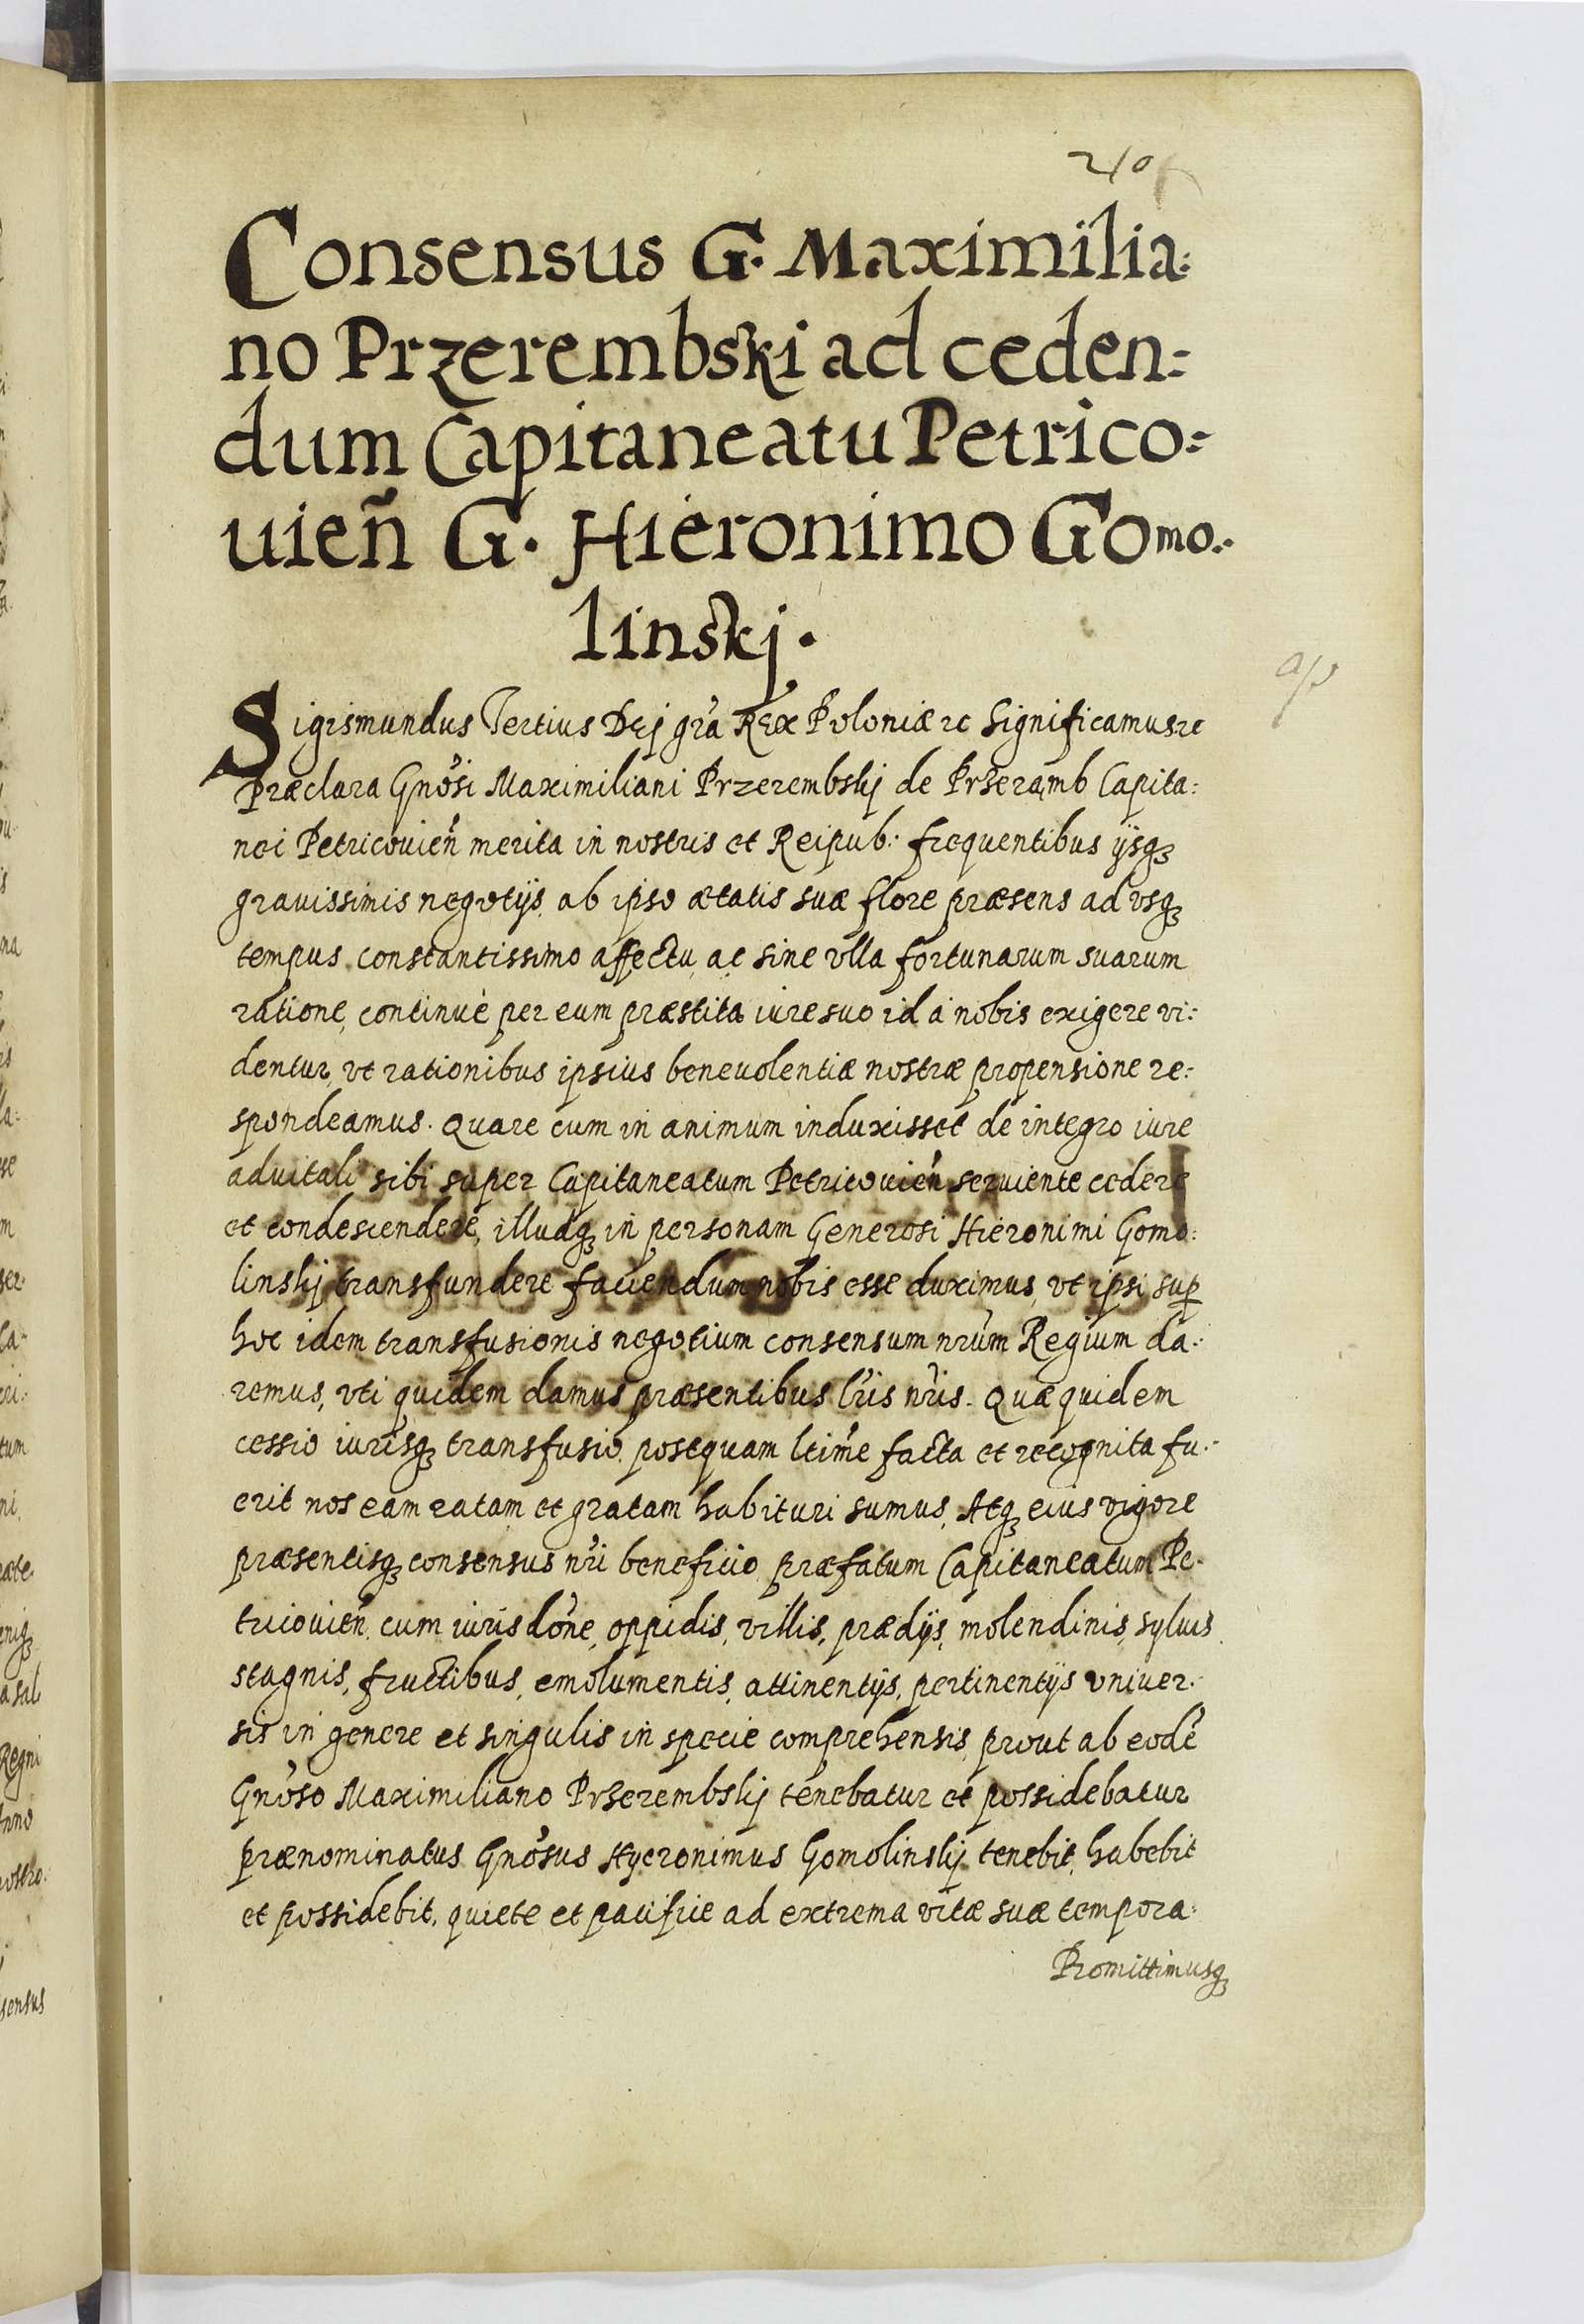 210
Consensus G. Maximilia:
no Przerembski ad ceden:
dum Capitaneatu Petrico:
uieñ G. Hieronimo Gomo:
linskj.
Sigismundus Tertius Dej gra Rex Poloniæ rc Significamus rc
Præclara Gnosi Maximiliani Przerembskij de Przeramb Capita:
nei Petricouien merita in nostris et Reipub: frequentibus ijsqꝫ
grauissimis negotijs, ab ipso ætatis suæ flore præsens ad vsqꝫ
tempus, constantissimo affectu, ac sine vlla fortunarum suarum
ratione, continuè per eum præstita iure suo id à nobis exigere vi:
dentur, vt rationibus ipsius beneuolentiæ nostræ propensione re:
spondeamus. Quare cum in animum induxisset de integro iure
aduitali sibi super Capitaneatum Petricouień seruiente cedere
et condescendere, illudqꝫ in personam Generosi Hieronimi Gomo:
linskij transfundere faciendum nobis esse duximus, vt ipsi sup
hoc idem transfusionis negotium consensum nrum Regium da:
remus, vti quidem damus præsentibus lris nris. Quæ quidem
cessio iurisqꝫ transfusio, postquam ltime facta et recognita fu:
erit nos eam ratam et gratam habituri sumus, Atqꝫ eius vigore
præsentisqꝫ consensus nri beneficio, præfatum Capitaneatum Pe:
tricouień, cum iurisdone, oppidis, villis, prædijs, molendinis, syluis,
stagnis, fructibus, emolumentis, attinentijs, pertinentijs vniuer:
sis in genere et singulis in specie comprehensis, prout ab eodē
Gnoso Maximiliano Przerembskij tenebatur et possidebatur
prænominatus Gnosus Hyeronimus Gomolinskij tenebit, habebit
et possidebit, quiete et pacifice ad extrema vitæ suæ tempora.
Promittimusqꝫ